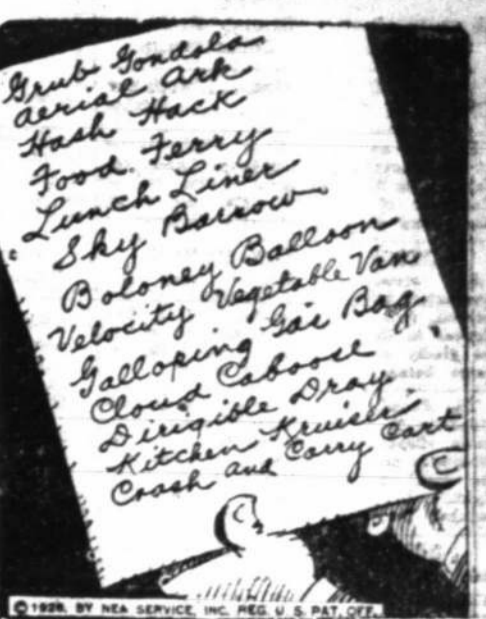 Grub Gondola
Aerial Ark
Hash Hack
Food Ferry
Lunch Liner
Sky Barrow
Boloney Balloon
Velocity Vegetable Van
Galloping Gas Bag
Cloud Caboose
Dirigible Dray
Kitchen Kruiser
Crash and Carry Cart
© 1928, BY NEA SERVICE, INC. REG. U. S. PAT. OFF.